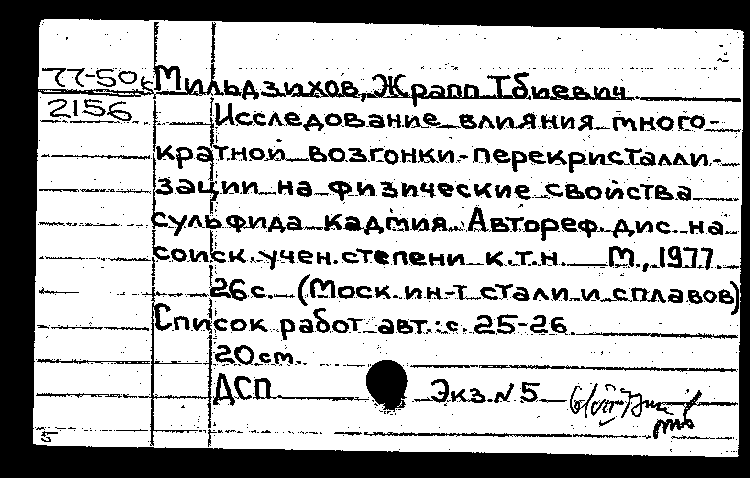 77-50 Мильдзихов, Жрапп Тбиевич
2156 Исследование влияния много-
кратной возгонки-перекристалли-
зации на физические свойства
сульфида кадмия. Автореф. дис. на
соиск. учен. степени к.т.н. М., 1977
26 с. (Моск. ин-т стали и сплавов)
Список работ авт.: с. 25-26
20 cm.
ДСП Экз. N 5
5